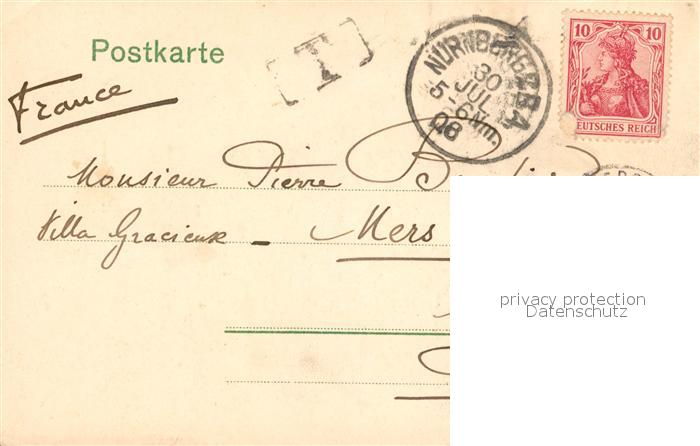 Postkarte
[T]
NÜRNBERG 2 BA
30
JUL
5-6 Nm.
08
10 10
DEUTSCHES REICH
France
Monsieur Pierre
Villa Gracieuse - Mers
privacy protection
Datenschutz